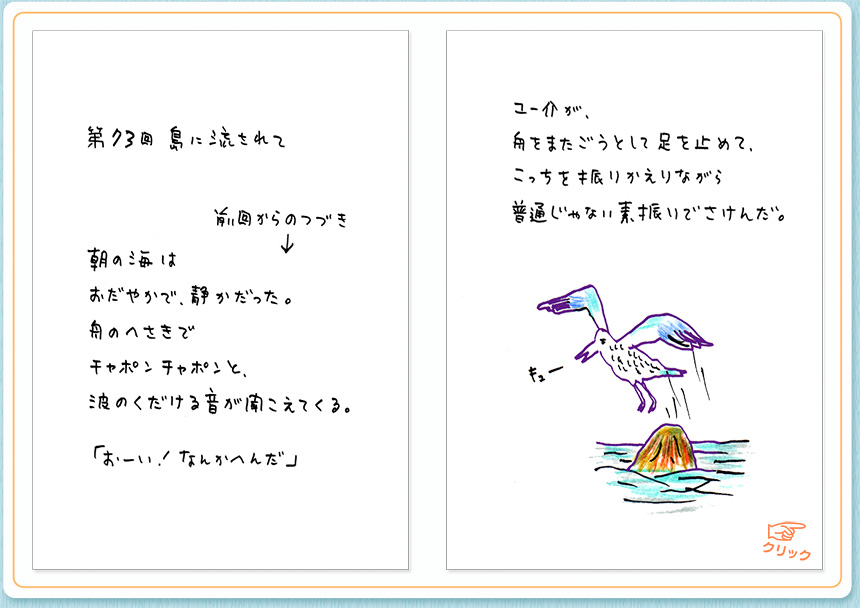 第73回 島に流されて
前回からのつづき
↓
朝の海は
おだやかで、静かだった。
舟のへさきで
チャポンチャポンと、
波のくだける音が聞こえてくる。
「おーい！なんかへんだ」
ユー介が、
舟をまたごうとして足を止めて、
こっちを振りかえりながら
普通じゃない素振りでさけんだ。
キュー
クリック